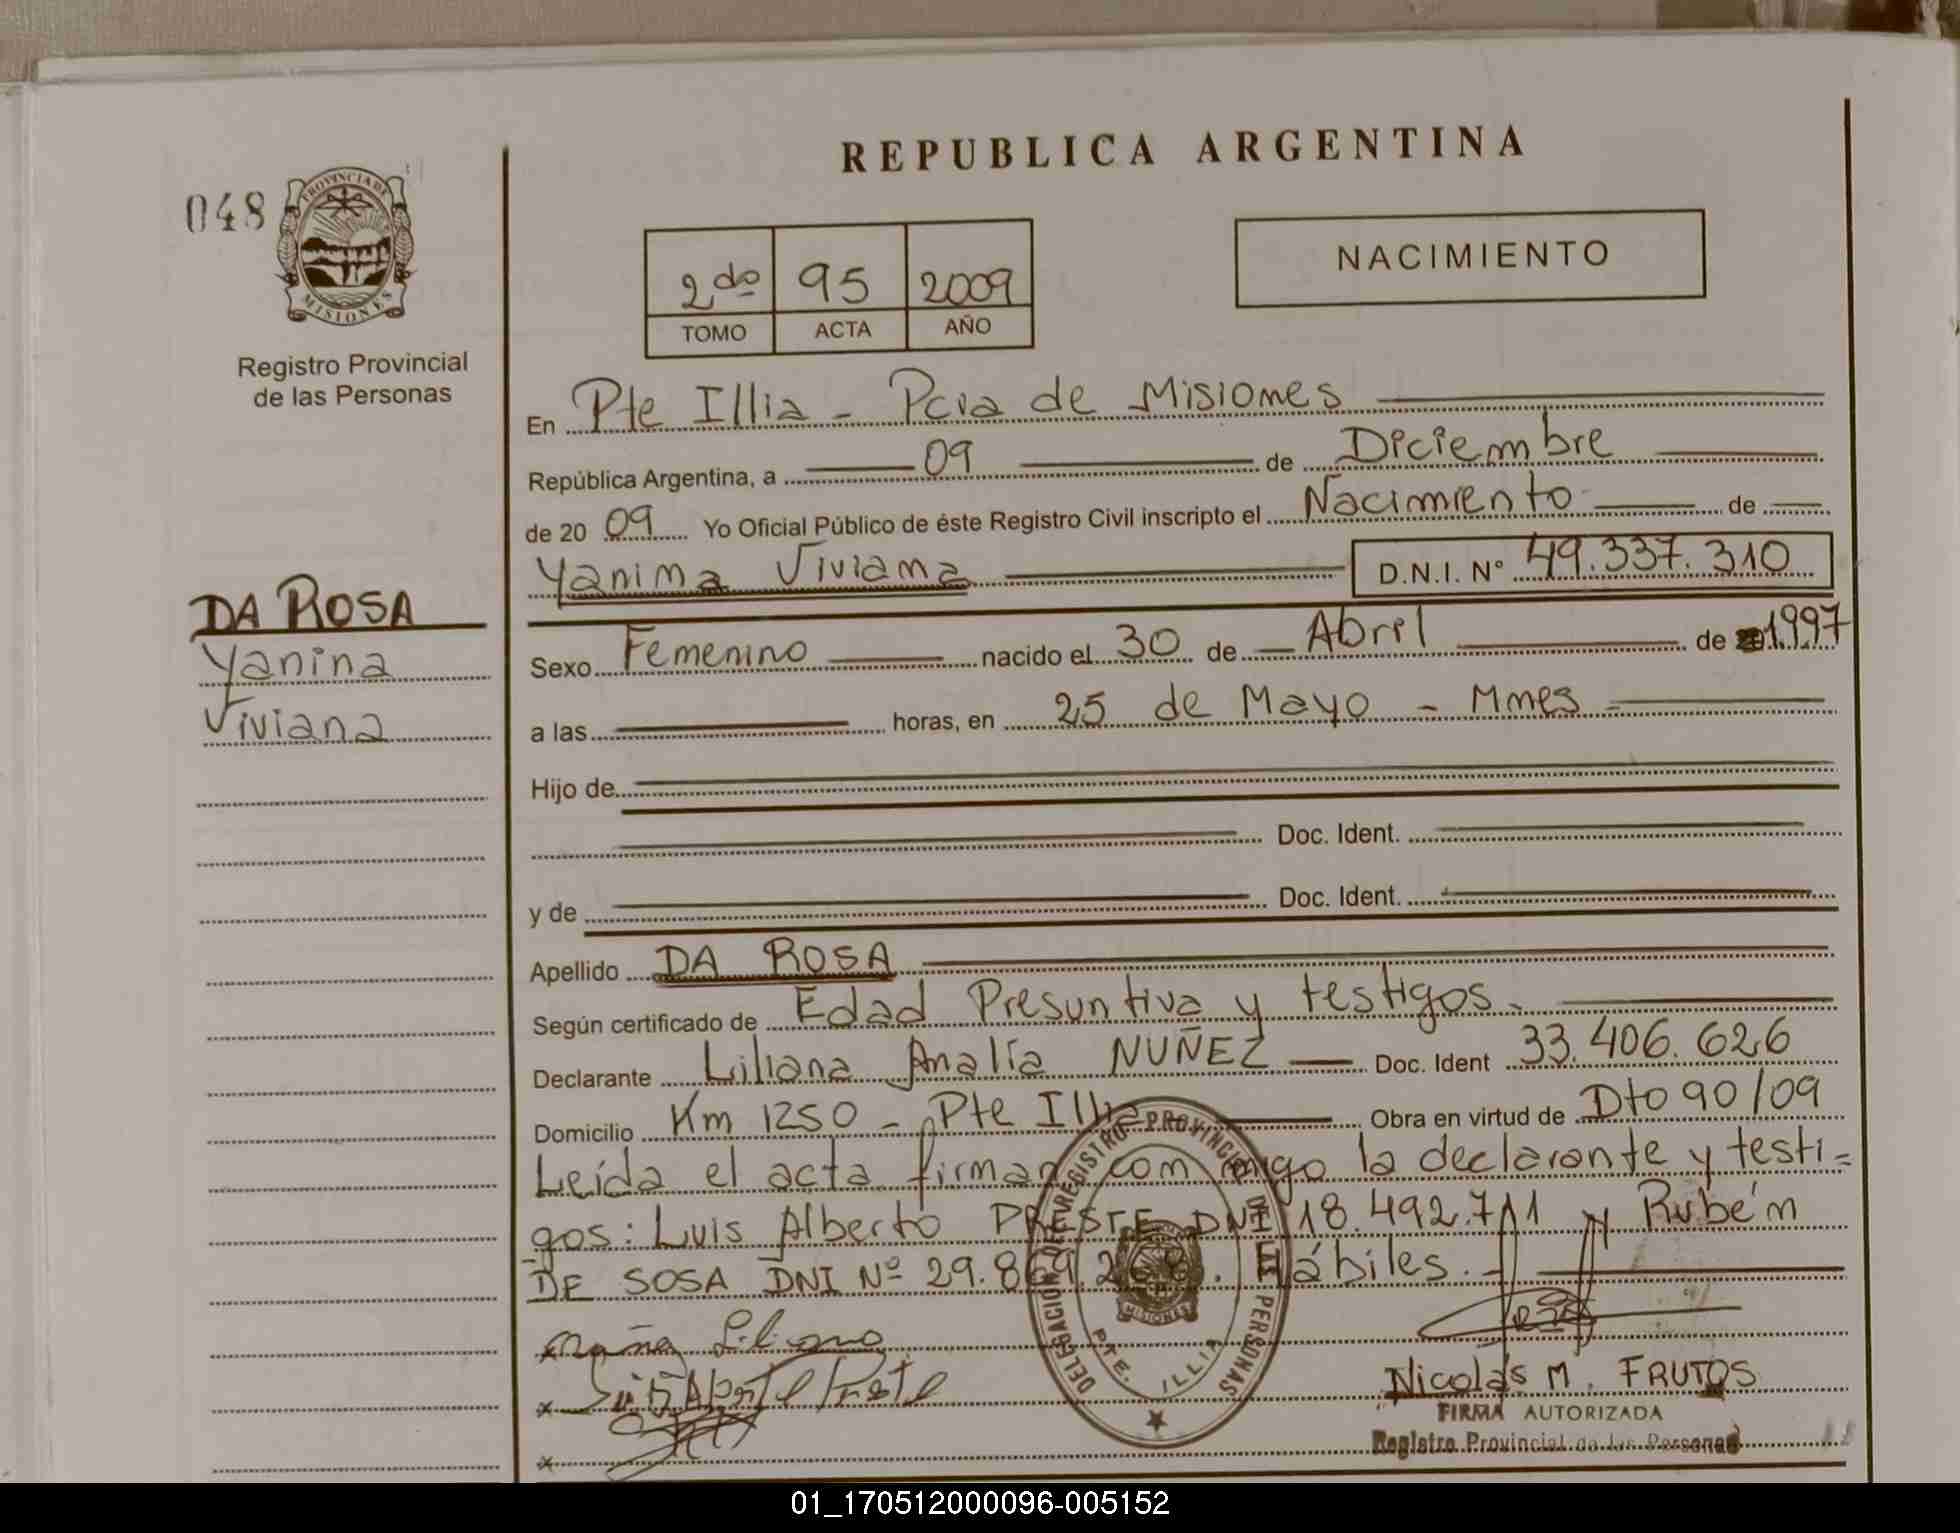 REPUBLICA ARGENTINA
048
PROVINCIA DE
MISIONES
Registro Provincial
de las Personas
2do 95 2009
TOMO ACTA AÑO
NACIMIENTO
En Pte Illia - Pcia de Misiones
República Argentina, a 09 de Diciembre
de 2009 Yo Oficial Público de éste Registro Civil inscripto el Nacimiento de
Yanina Viviana D.N.I. N° 49.337.310
DA ROSA
Yanina
Viviana
Sexo Femenino nacido el 30 de Abril de 1997
a las horas, en 25 de Mayo - Mnes
Hijo de
Doc. Ident.
y de Doc. Ident.
Apellido DA ROSA
Según certificado de Edad Presuntiva y testigos.
Declarante Liliana Analía NUÑEZ Doc. Ident 33.406.626
Domicilio Km 1250 - Pte Illia Obra en virtud de Dto 90/09
Leída el acta firman conmigo la declarante y testi=
gos: Luis Alberto PRESTE DNI 18.492.711 y Rubén
DE SOSA DNI Nº 29.869.268. Hábiles.
DELEGACION DEL REGISTRO PROVINCIAL DE LAS PERSONAS
MISIONES
PTE. ILLIA
Nicolás M. FRUTOS
FIRMA AUTORIZADA
Registro Provincial de las Personas
01_170512000096-005152